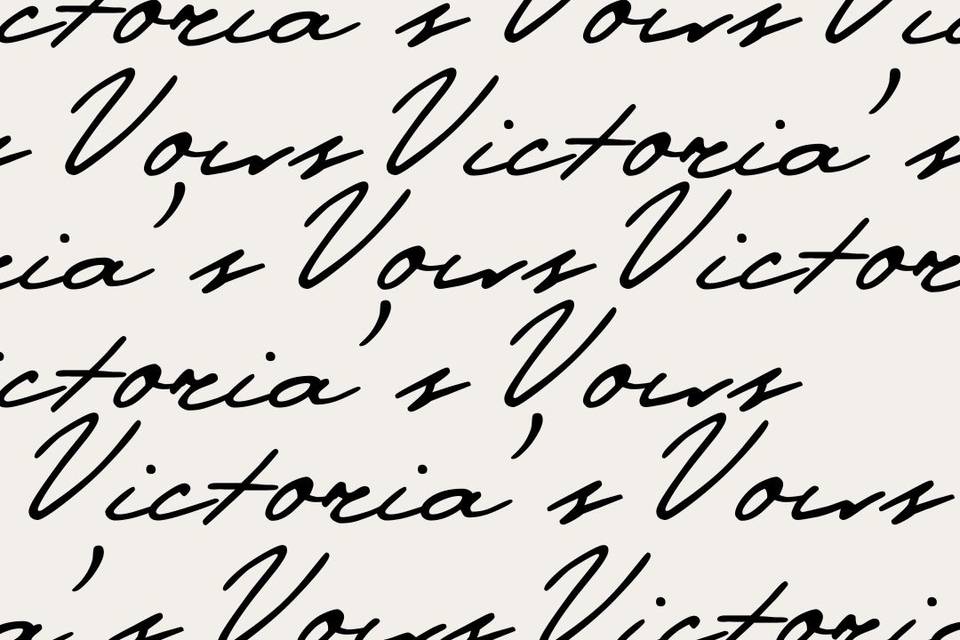 ctoria's Vows Vic
s Vows Victoria's
ria's Vows Victor
ictoria's Vows
Victoria's Vows
a's Vows Victoria